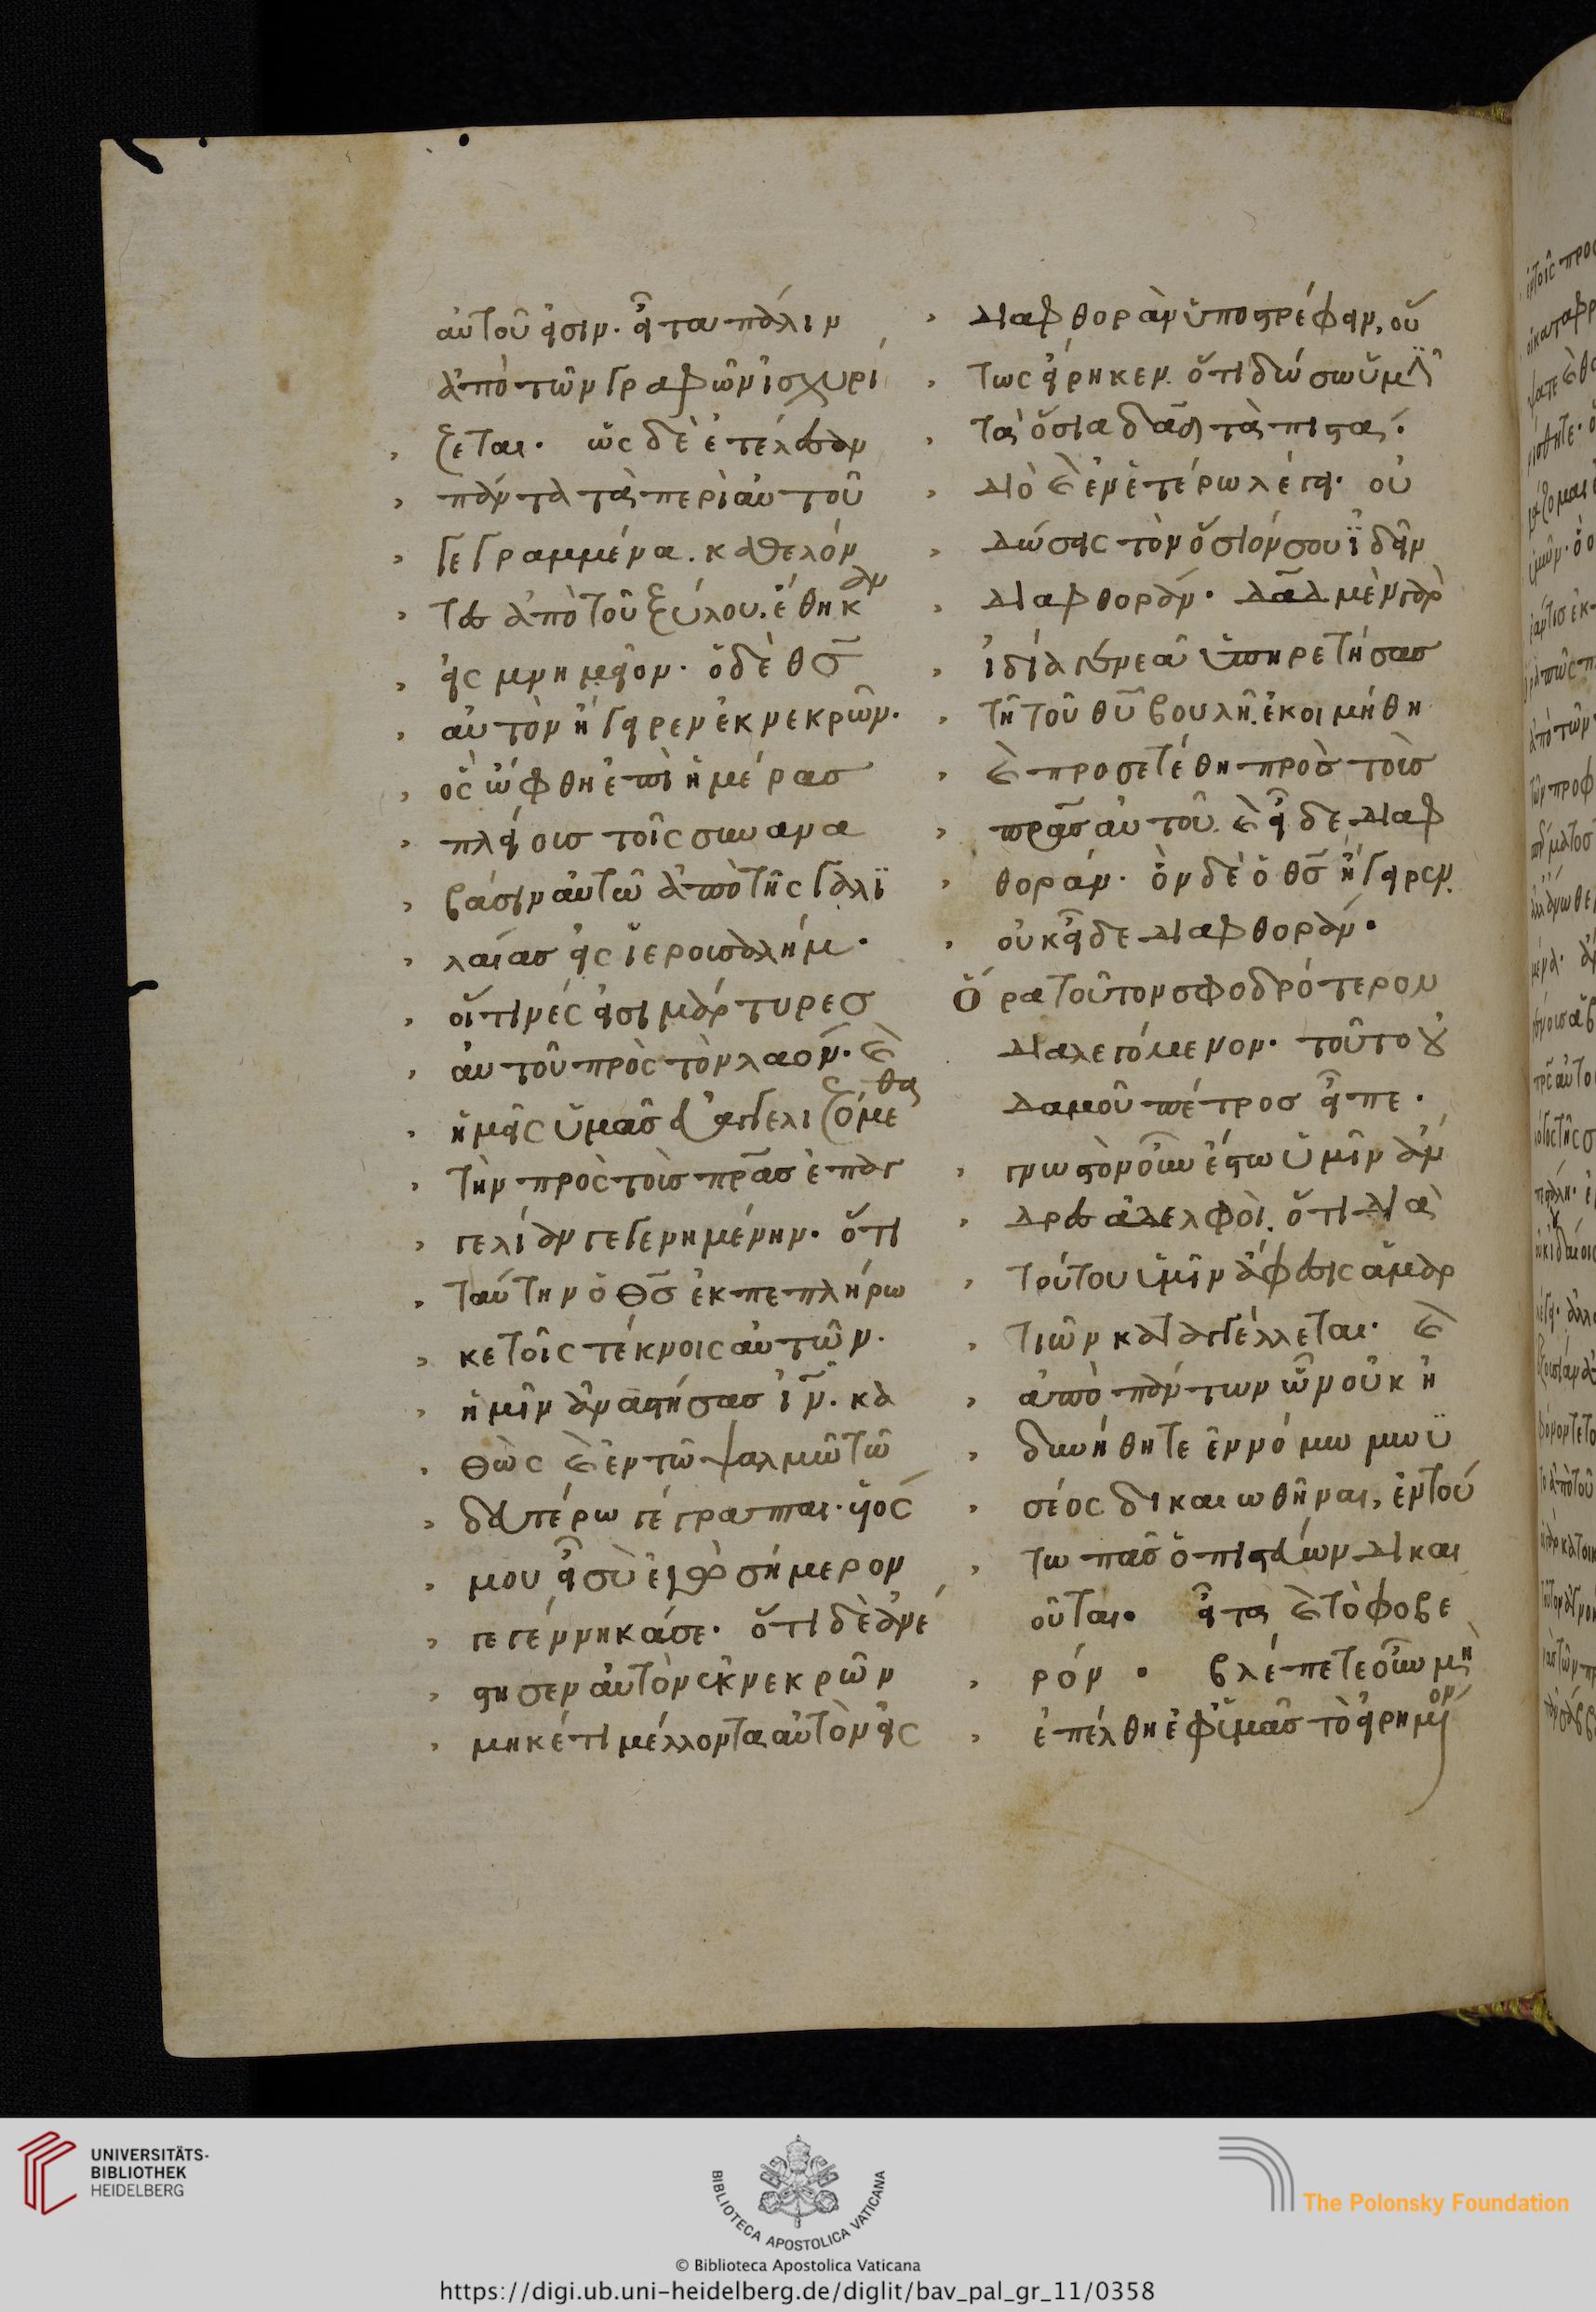 αὐτοῦ εἰσιν. εἶτα πάλιν
ἀπὸ τῶν γραφῶν ἰσχυρί
ζεται. ὡς δὲ ἐτέλεσαν
πάντα τὰ περὶ αὐτοῦ
γεγραμμένα. καθελόν
τες ἀπὸ τοῦ ξύλου. ἔθηκαν
εἰς μνημεῖον. ὁ δὲ θσ
αὐτὸν ἤγειρεν ἐκ νεκρῶν.
ὃς ὤφθη ἐπὶ ἡμέρας
πλείους τοῖς συνανα
βάσιν αὐτῶ ἀπὸ τῆς γαλι
λαίας εἰς ϊερουσαλήμ.
οἵτινές εἰσι μάρτυρες
αὐτοῦ πρὸς τὸν λαόν. καὶ
ἡμεῖς ὑμᾶς εὐαγγελιζόμεθα
τὴν πρὸς τοὺς πρασ ἐπαγ
γελίαν γεγενημένην. ὅτι
ταύτην ὁ θσ ἐκπεπλήρω
κε τοῖς τέκνοις αὐτῶν.
ἡμῖν ἀναστήσας ιν. κα
θὼς καὶ ἐν τῶ ψαλμῶ τῶ
δευτέρω γέγραπται. υἱός
μου εἶ σὺ ἐγὼ σήμερον
γεγέννηκά σε. ὅτι δὲ ἀνέ
στησεν αὐτὸν ἐκ νεκρῶν
μηκέτι μέλλοντα αὐτὸν εἰς
διαφθορὰν ὑποστρέφειν, οὕ
τως εἴρηκεν. ὅτι δώσω ὑμῖν
τὰ ὅσια δαδ τὰ πιστά.
διὸ καὶ ἐν ἑτέρω λέγει. οὐ
δώσεις τὸν ὅσιόν σου ϊδεῖν
διαφθοράν. δαδ μὲν γὰρ
ἰδία γενεᾶ ὑπηρετήσας
τῆ τοῦ θυ βουλῆ. ἐκοιμήθη
καὶ προσετέθη πρὸς τοὺς
πρασ αὐτοῦ. καὶ εἶδε διαφ
θοράν. ὃν δὲ ὁ θσ ἤγειρεν.
οὐκ εἶδε διαφθοράν.
Ὅρα τοῦτον σφοδρότερον
διαλεγόμενον. τοῦτο οὐ
δαμοῦ πέτρος εἶπε.
γνωστὸν οὖν ἔστω ὑμῖν ἄν
δρες ἀδελφοὶ. ὅτι διὰ
τούτου ὑμῖν ἄφεσις ἁμαρ
τιῶν καταγγέλλεται. καὶ
ἀπὸ πάντων ὧν οὐκ ἠ
δυνήθητε ἐν νόμω μωϋ
σέος δικαιωθῆναι, ἐν τού
τω πᾶς ὁ πιστεύων δικαι
οῦται. εἶτα καὶ τὸ φοβε
ρόν. βλέπετε οὖν μὴ
ἐπέλθη ἐφ' ὑμᾶς τὸ εἰρημένον
UNIVERSITÄTS-
BIBLIOTHEK
HEIDELBERG
BIBLIOTECA APOSTOLICA VATICANA
The Polonsky Foundation
© Biblioteca Apostolica Vaticana
https://digi.ub.uni-heidelberg.de/diglit/bav_pal_gr_11/0358